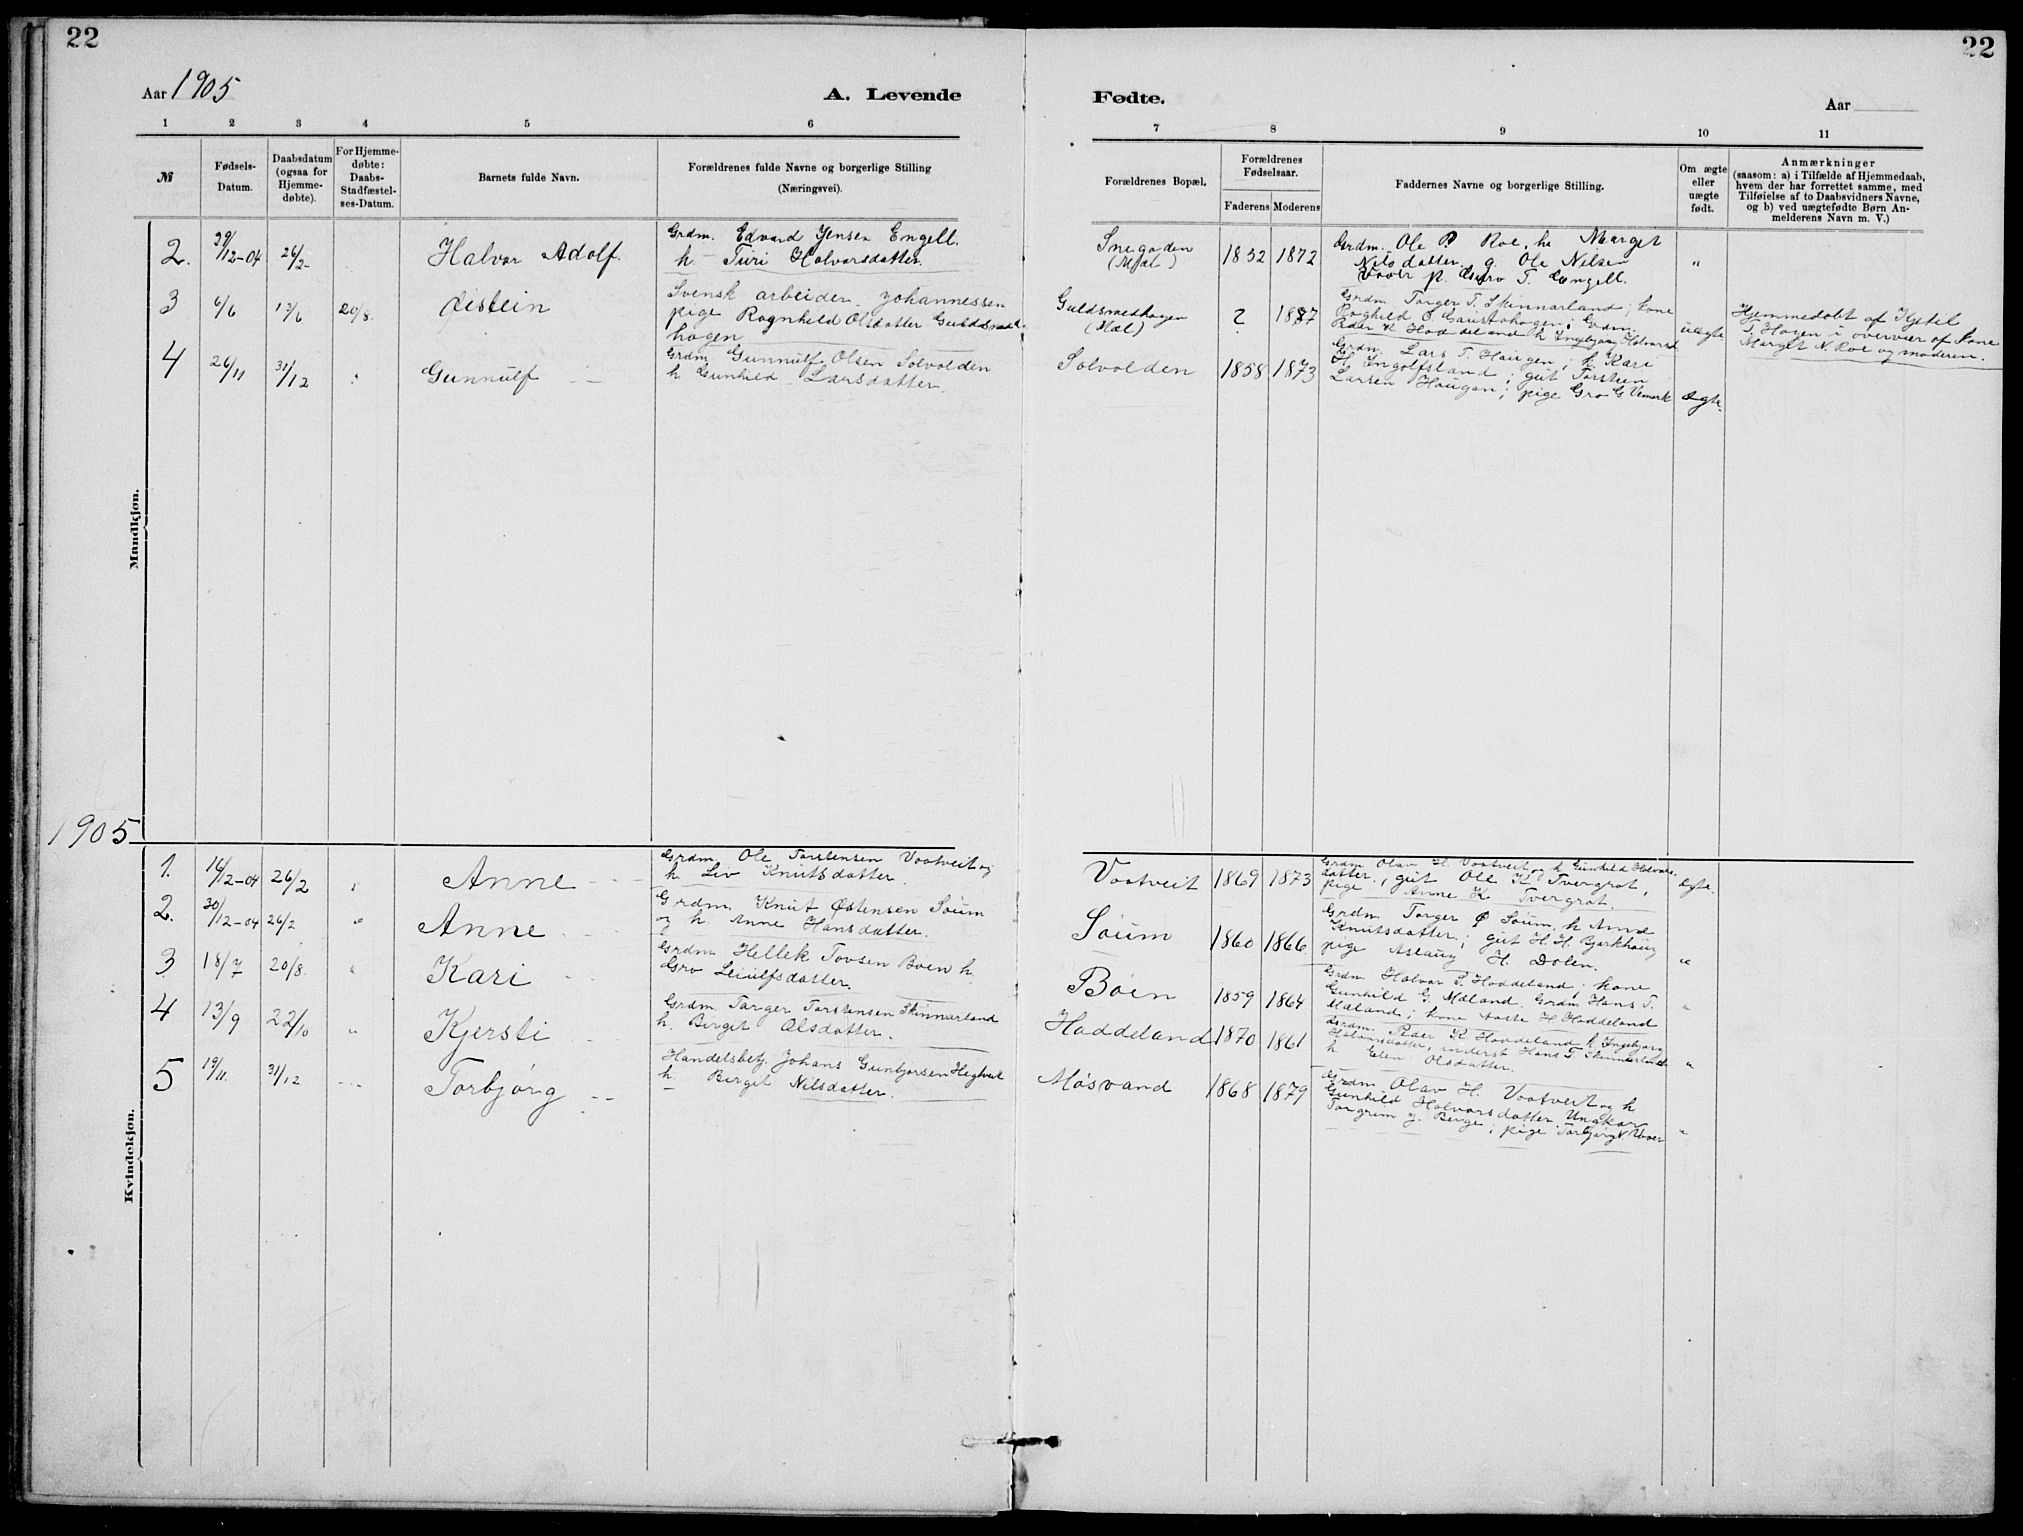 22
22
Aar 1905
A. Levende
Fødte.
Aar
1 2 3 4 5 6
7 8 9 10 11
№
Fødsels-
Datum.
Daabsdatum
(ogsaa for
Hjemme-
døbte).
For Hjemme-
døbte:
Daabs-
Stadfæstel-
ses-Datum.
Barnets fulde Navn.
Forældrenes fulde Navne og borgerlige Stilling
(Næringsvei).
Forældrenes Bopæl.
Forældrenes
Fødselsaar.
Faderens Moderens
Faddernes Navne og borgerlige Stilling.
Om ægte
eller
uægte
født.
Anmærkninger
(saasom: a) i Tilfælde af Hjemmedaab,
hvem der har forrettet samme, med
Tilføielse af to Daabsvidners Navne,
og b) ved uægtefødte Børn An-
melderens Navn m. V.)
Mandkjøn.
2. 29/12-04 26/2 Halvor Adolf.
Grdm. Edvard Jensen Engell.
h. Turi Halvorsdatter.
Snegaden
(Mæl)
1852 1872
Grdm. Ole P. Roe, h. Marget
Nilsdatter. g. Ole Nilsen
p. Gro T. Engell.
"
3 6/6 13/6 20/8. Øistein
Svensk arbeider Johannessen
pige Ragnhild Olsdatter Guldsmed
hagen
Guldsmedhagen
(Mæl)
? 1887
Grdm Targer T. Skinnarland; kone
Roghild O. Gaustahagen; Grdm.
Peder K Haddeland h Ingebjørg Halvorsd
uægte
Hjemmedøbt af Kjetil
T. Hagen i overvær af kone
Marget N. Roe og moderen.
4 26/11 31/12 Gunnulf
Grdm Gunnulf Olsen Solvolden
h Gunhild Larsdatter.
Solvolden
1858 1873
Grdm. Lars T. Haugen; h Kari
H. Ingolfsland; gut Torstein
Larsen Haugan; pige Gro G. Vemork
ægte.
1905
Kvindekjøn.
1. 16/12-04 26/2 " Anne
Grdm Ole Torstensen Vaatveit og
h Liv Knutsdatter.
Vaatveit 1869 1873
Grdm Olav H. Vaatveit og h Gunhild Halvors-
datter., gut Ole K. Tvergrot,
pige Anne K Tvergrot.
ægte.
2. 30/12-04 26/2 " Anne
Grdm. Knut Østensen Søum
og h. Anne Hansdatter.
Søum 1860 1866
Grdm. Targer Ø Søum, h Anne
Knutsdatter; gut H. H. Bjørkhaug
pige Aslaug H. Dølen.
"
3 18/7 20/8. " Kari
Grdm Hellek Tovsen Bøen h.
Gro Leiulfsdatter.
Bøen 1859 1864
Grdm. Halvor P. Haddeland; kone
Gunhild G. Mæland. Grdm Hans T.
Mæland; kone H Haddeland
"
4 13/9 22/10 " Kjersti
Grdm. Targer Torstensen Skinnarland
h. Birgit Olsdatter.
Haddeland 1870 1861
Grdm. Peder K Haddeland h Ingebjørg
Halvorsdatter, inderst Hans T Skinnarland
h Elen Olsdatter.
"
5 19/11. 31/12 Torbjørg
Handelsbetj. Johans Gunbjørsen Hegtveit
h. Birgit Nilsdatter.
Møsvand 1868 1879
Grdm Olav H. Vaatveit og h
Gunhild Halvorsdatter. Ungkar
Torgrim J. Berge; pige Torbjørg
"